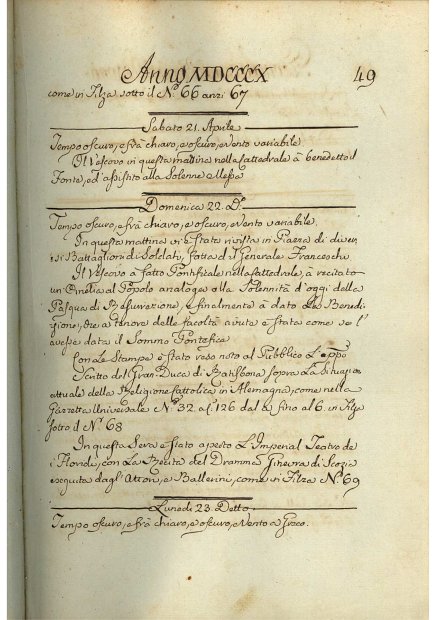 Anno MDCCCX 49
come in Filza sotto il N.° 66 anzi 67
Sabato 21. Aprile
Tempo oscuro, e frà chiaro, e oscuro, e Vento variabile
Il Vescovo in questa mattina nella Cattedrale à benedetto il
Fonte, ed assistito alla Solenne Messa
Domenica 22. D.°
Tempo oscuro, e frà chiaro, e oscuro, e Vento variabile.
In questa mattina vi è stata rivista in Piazza di diver,
si Battaglioni di Soldati, fatta dal Generale Franceschi
Il Vescovo à fatto Pontificale nella Cattedrale, à recitato
un'Omelia al Popolo analoga alla Solennità d'oggi della
Pasqua di Resurrezione, e finalmente à dato la Benedi,
zione, che a tenore delle facoltà avute è stata come se l'
avesse data il Sommo Pontefice
Con le Stampe è stato reso noto al Pubblico L'
Scritto del Gran Duca di Ratisbona sopra La Situazion
attuale della Religione Cattolica in Alemagna, come nella
Gazzetta Universale N.° 32. a f. 126 dal fino al 6. in Filza
sotto il N.° 68
In questa Sera è stato aperto L'Imperial Teatro de
i Floridi, con La Recita del Dramma Ginevra di Scozia
eseguita dagl'Attori, e Ballerini, come in Filza N.° 69
Lunedì 23. Detto
Tempo oscuro, e frà chiaro, e oscuro, e Vento a Greco.